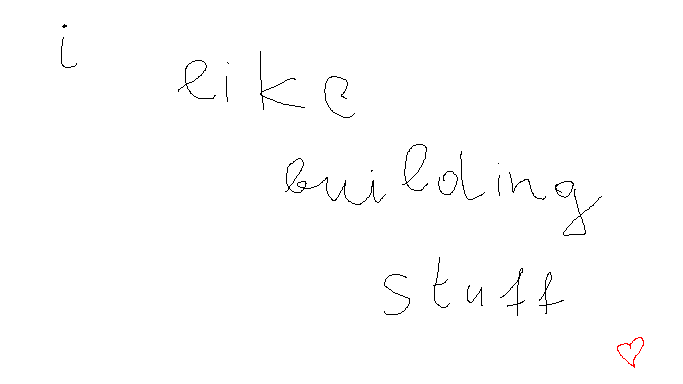 i
like
building
stuff